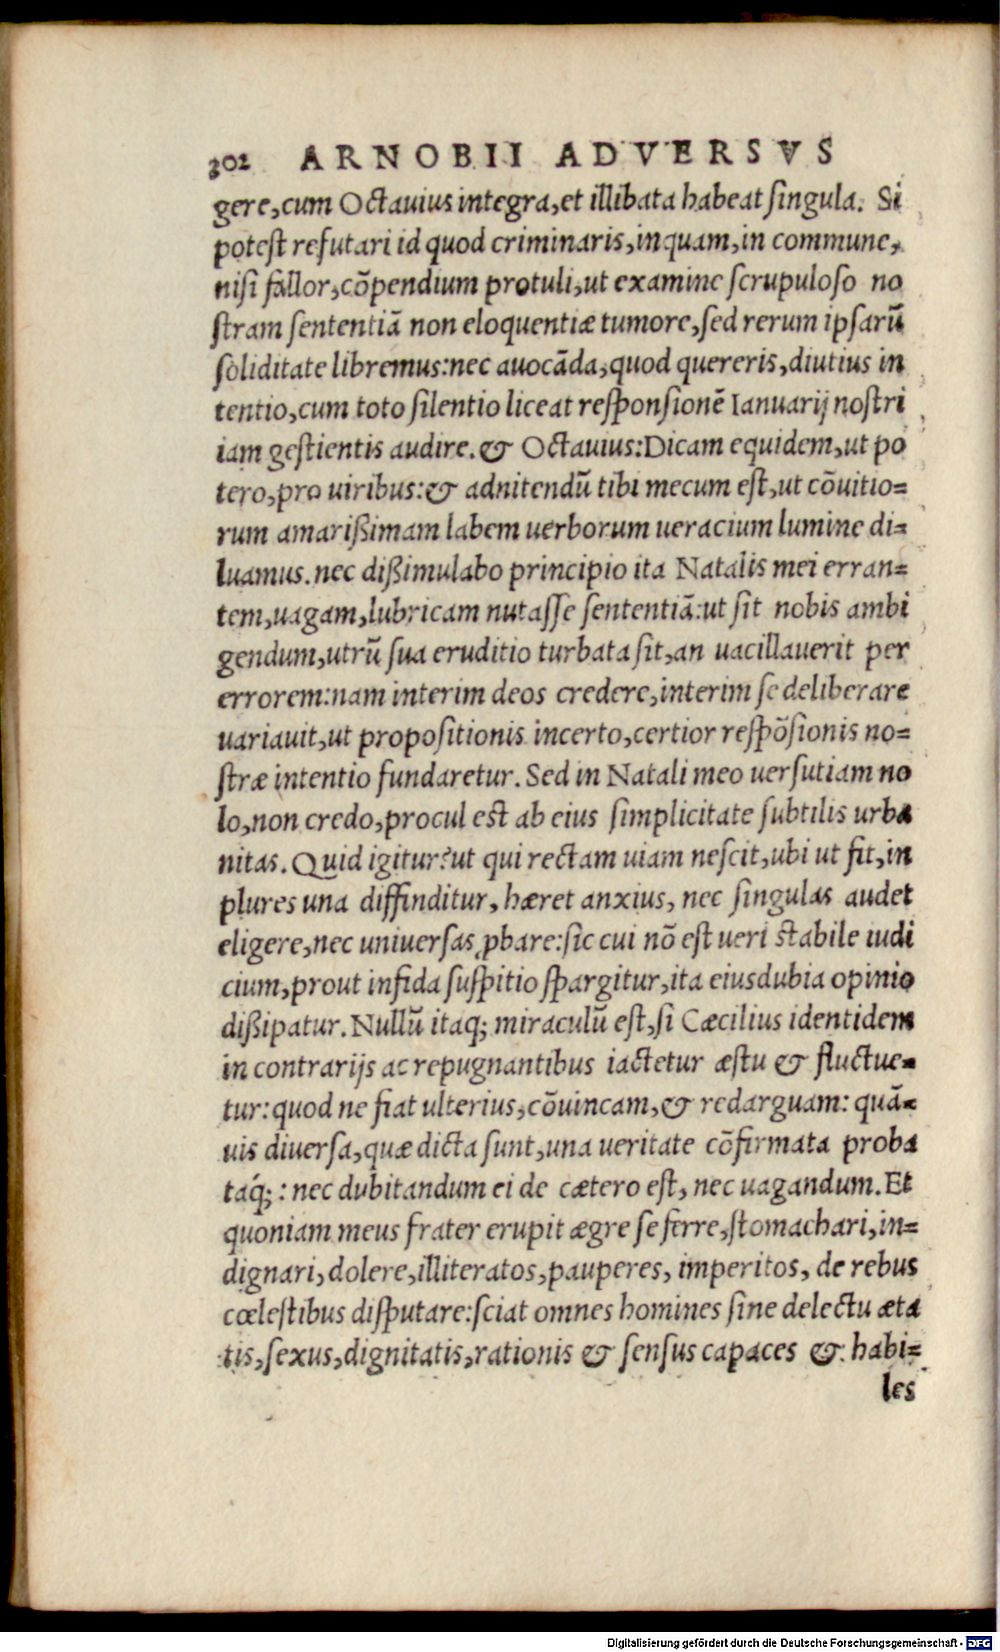 302 ARNOBII ADVERSVS
gere,cum Octauius integra,et illibata habeat ſingula. Si
poteſt refutari id quod criminaris,inquam,in commune,
niſi fallor,cõpendium protuli,ut examine ſcrupuloſo no
ſtram ſententiã non eloquentiæ tumore,ſed rerum ipſarũ
ſoliditate libremus:nec auocãda,quod quereris,diutius in
tentio,cum toto ſilentio liceat reſponſionẽ Ianuarij noſtri
iam geſtientis audire. & Octauius:Dicam equidem,ut po
tero,pro uiribus:& adnitendũ tibi mecum eſt,ut cõuitio=
rum amarißimam labem uerborum ueracium lumine di=
luamus. nec dißimulabo principio ita Natalis mei erran=
tem,uagam,lubricam nutaſſe ſententiã:ut ſit nobis ambi
gendum,utrũ ſua eruditio turbata ſit,an uacillauerit per
errorem:nam interim deos credere,interim ſe deliberare
uariauit,ut propoſitionis incerto,certior reſpõſionis no=
ſtræ intentio fundaretur. Sed in Natali meo uerſutiam no
lo,non credo,procul eſt ab eius ſimplicitate ſubtilis urba
nitas. Quid igitur?ut qui rectam uiam neſcit,ubi ut fit,in
plures una diffinditur, hæret anxius, nec ſingulas audet
eligere,nec uniuerſas ꝓbare:ſic cui nõ eſt ueri ſtabile iudi
cium,prout infida ſuſpitio ſpargitur,ita eius dubia opinio
dißipatur. Nullũ itaq; miraculũ eſt,ſi Cæcilius identidem
in contrarijs ac repugnantibus iactetur æſtu & fluctue=
tur: quod ne fiat ulterius,cõuincam,& redarguam: quã=
uis diuerſa,quæ dicta ſunt,una ueritate cõfirmata proba
taq́; : nec dubitandum ei de cætero eſt, nec uagandum. Et
quoniam meus frater erupit ægre ſe ferre,ſtomachari,in=
dignari,dolere,illiteratos,pauperes, imperitos, de rebus
cœleſtibus diſputare:ſciat omnes homines ſine delectu æta
tis,ſexus,dignitatis,rationis & ſenſus capaces & habi=
les
Digitalisierung gefördert durch die Deutsche Forschungsgemeinschaft - DFG